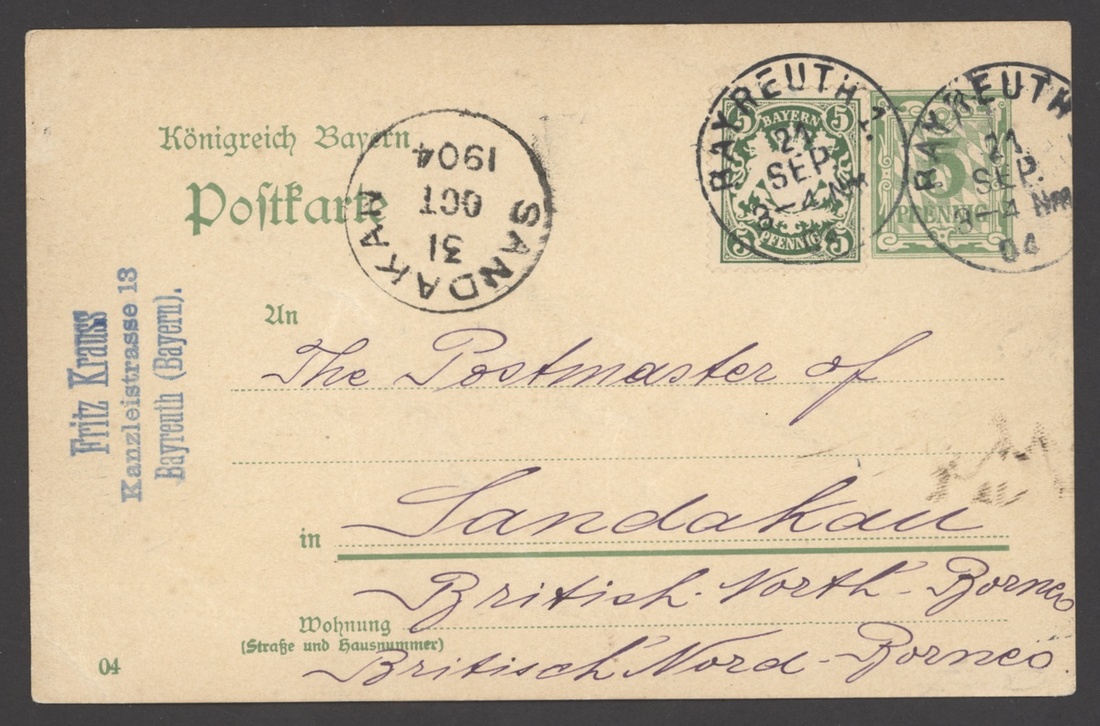 Königreich Bayern
Postkarte
SANDAKAN
31
OCT
1904
BAYREUTH 2
21
SEP.
3-4 Nm
5 BAYERN 5
5 PFENNIG 5
BAYREUTH
21
SEP.
3-4 Nm
04
5
PFENNIG
Fritz Krauss
Kanzleistrasse 13
Bayreuth (Bayern).
An
The Postmaster of
in Sandakan
British-North-Borneo
Wohnung
(Straße und Hausnummer)
Britisch Nord-Borneo.
04